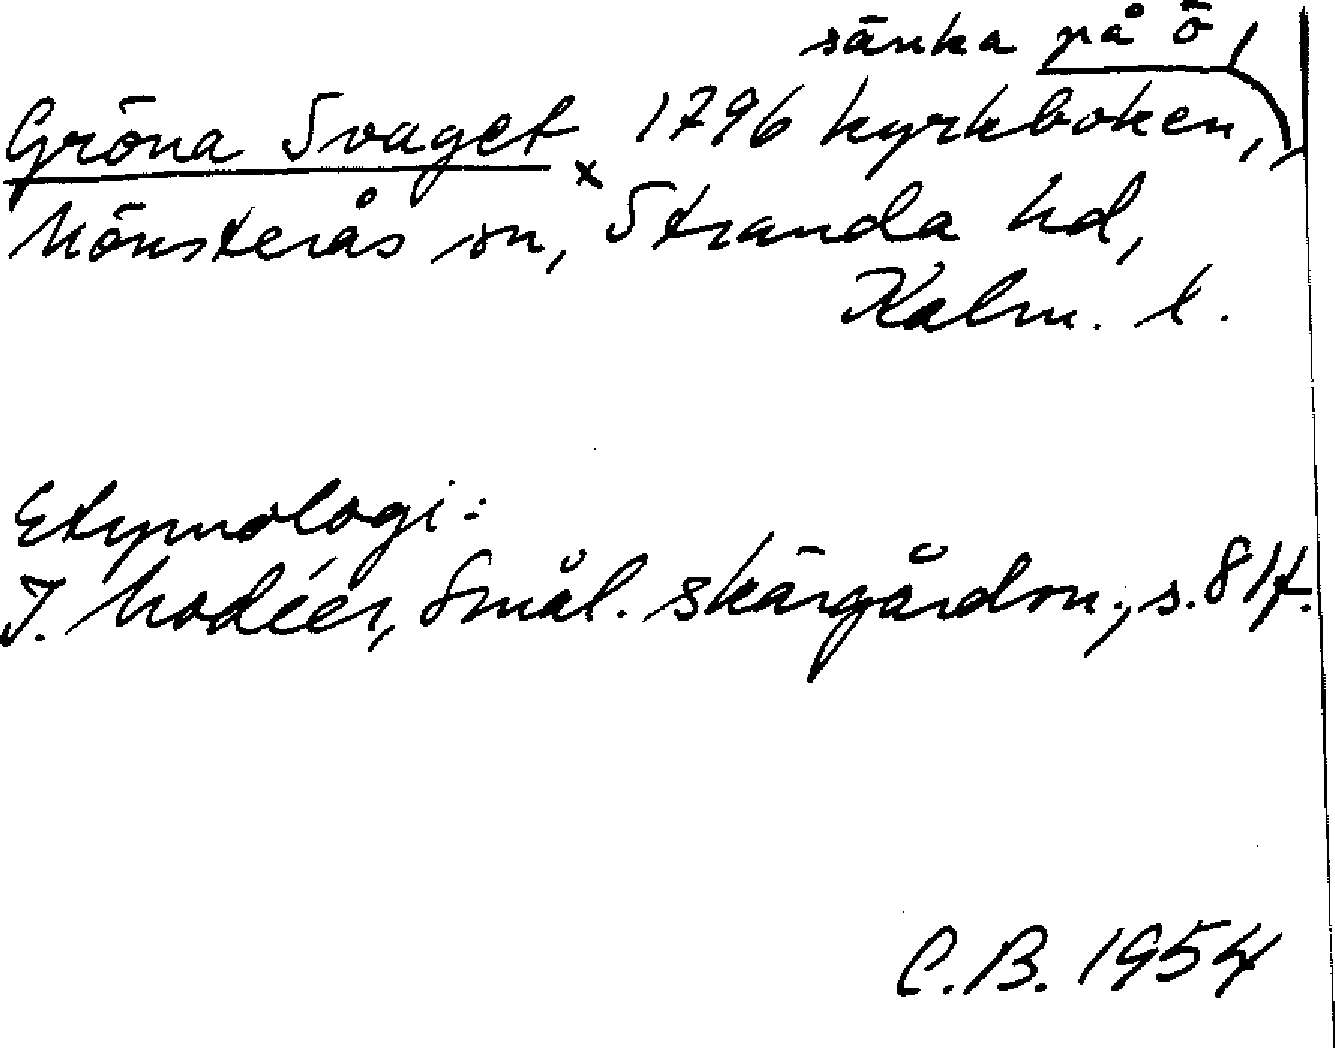 sänka på ö,
Gröna Svaget x 1796 kyrkboken,
Mönsterås sn, Stranda hd,
Kalm. l.
Etymologi:
I. Modéer, Smål. skärgårdsn., s. 817.
C.B. 1954